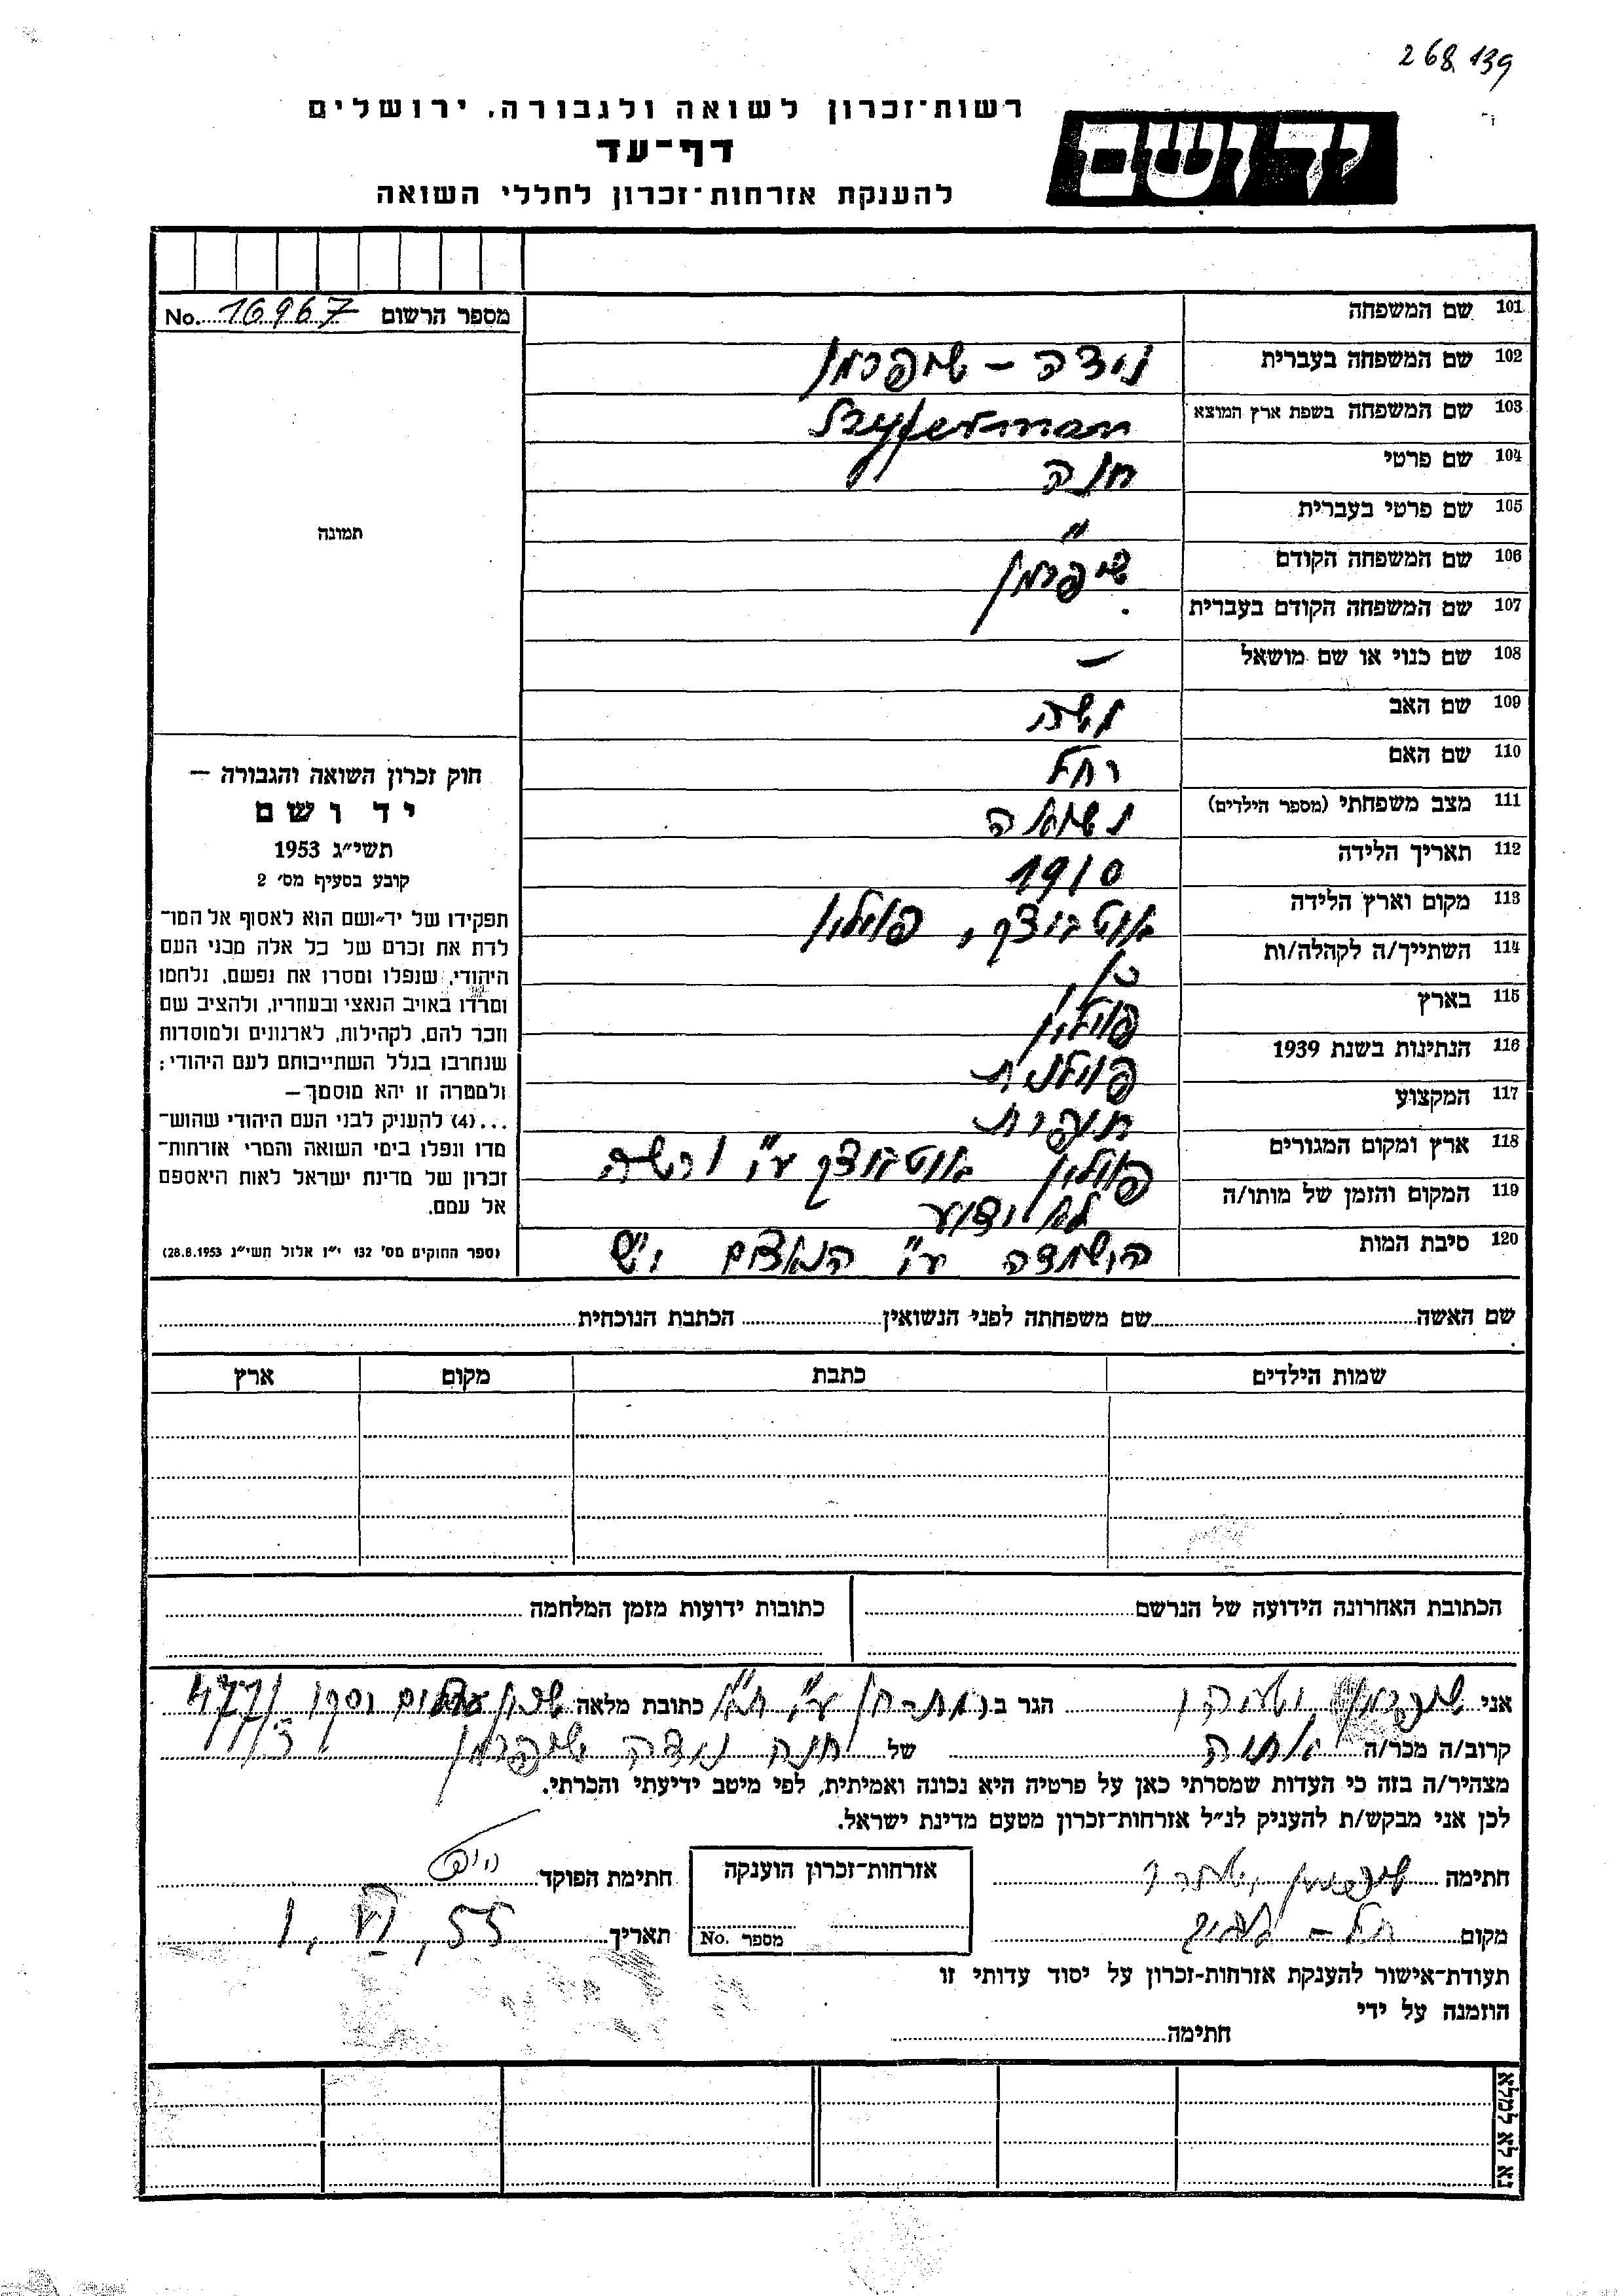 268139
רשות־זכרון לשואה ולגבורה, ירושלים
דף־עד
להענקת אזרחות־זכרון לחללי השואה
יד ושם
מספר הרשום No. 16967
101 שם המשפחה
102 שם המשפחה בעברית נוידה – שיפרמן
103 שם המשפחה בשפת ארץ המוצא Szyferman
104 שם פרטי חנה
105 שם פרטי בעברית "
106 שם המשפחה הקודם שיפרמן
107 שם המשפחה הקודם בעברית
108 שם כנוי או שם מושאל –
109 שם האב משה
110 שם האם רחל
111 מצב משפחתי (מספר הילדים) נשואה
112 תאריך הלידה 1910
113 מקום וארץ הלידה אוטבוצק, פוילין
114 השתייך/ה לקהלה/ות כן
115 בארץ פוילין
116 הנתינות בשנת 1939 פוילנית
117 המקצוע תופרת
118 ארץ ומקום המגורים פוילין אוטבוצק ע"י ורשה
119 המקום והזמן של מותו/ה לא ידוע
120 סיבת המות הושמדה ע"י הנאצים ימ"ש
תמונה
חוק זכרון השואה והגבורה –
יד ושם
תשי״ג 1953
קובע בסעיף מס׳ 2
תפקידו של יד־ושם הוא לאסוף אל המו־
לדת את זכרם של כל אלה מבני העם
היהודי, שנפלו ומסרו את נפשם, נלחמו
ומרדו באויב הנאצי ובעוזריו, ולהציב שם
וזכר להם, לקהילות, לארגונים ולמוסדות
שנחרבו בגלל השתייכותם לעם היהודי;
ולמטרה זו יהא מוסמך –
...(4) להעניק לבני העם היהודי שהוש־
מדו ונפלו בימי השואה והמרי אזרחות־
זכרון של מדינת ישראל לאות היאספם
אל עמם.
(ספר החוקים מס׳ 132 י״ז אלול תשי״ג 28.8.1953)
שם האשה שם משפחתה לפני הנשואין הכתבת הנוכחית
שמות הילדים כתבת מקום ארץ
הכתובת האחרונה הידועה של הנרשם כתובות ידועות מזמן המלחמה
אני שיפרמן הגר ב רמת-חן ע"י ת"א כתובת מלאה שכון עממי 477/
קרוב/ה מכר/ה אחות של חנה נוידה שיפרמן
מצהיר/ה בזה כי העדות שמסרתי כאן על פרטיה היא נכונה ואמיתית, לפי מיטב ידיעתי והכרתי.
לכן אני מבקש/ת להעניק לנ״ל אזרחות־זכרון מטעם מדינת ישראל.
חתימה שיפרמן אזרחות־זכרון הוענקה חתימת הפוקד
מקום תל – אביב מספר No. תאריך 1, VI, 55
תעודת־אישור להענקת אזרחות-זכרון על יסוד עדותי זו
הוזמנה על ידי
חתימה
נא לא למלא